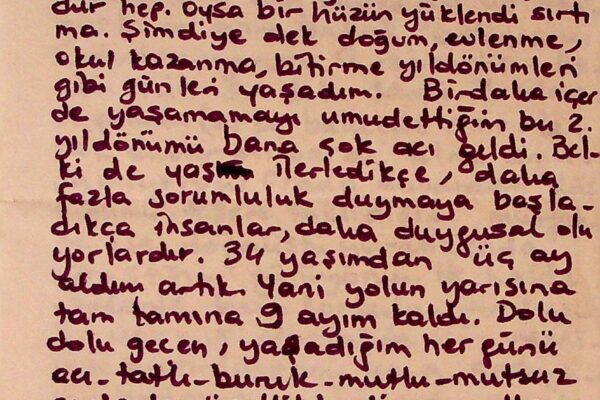 dur hep. Oysa bir hüzün yüklendi sırtı
ma. Şimdiye dek doğum, evlenme,
okul kazanma, bitirme yıldönümleri
gibi günleri yaşadım. Birdaha içer
de yaşamamayı umudettiğim bu 2.
yıldönümü bana çok acı geldi. Bel-
ki de yaş ilerledikçe, daha
fazla sorumluluk duymaya başla-
dıkça insanlar, daha duygusal olu
yorlardır. 34 yaşımdan üç ay
aldım artık. Yani yolun yarısına
tam tamına 9 ayım kaldı. Dolu
dolu geçen, yaşadığım her günü
acı-tatlı-buruk-mutlu-mutsuz